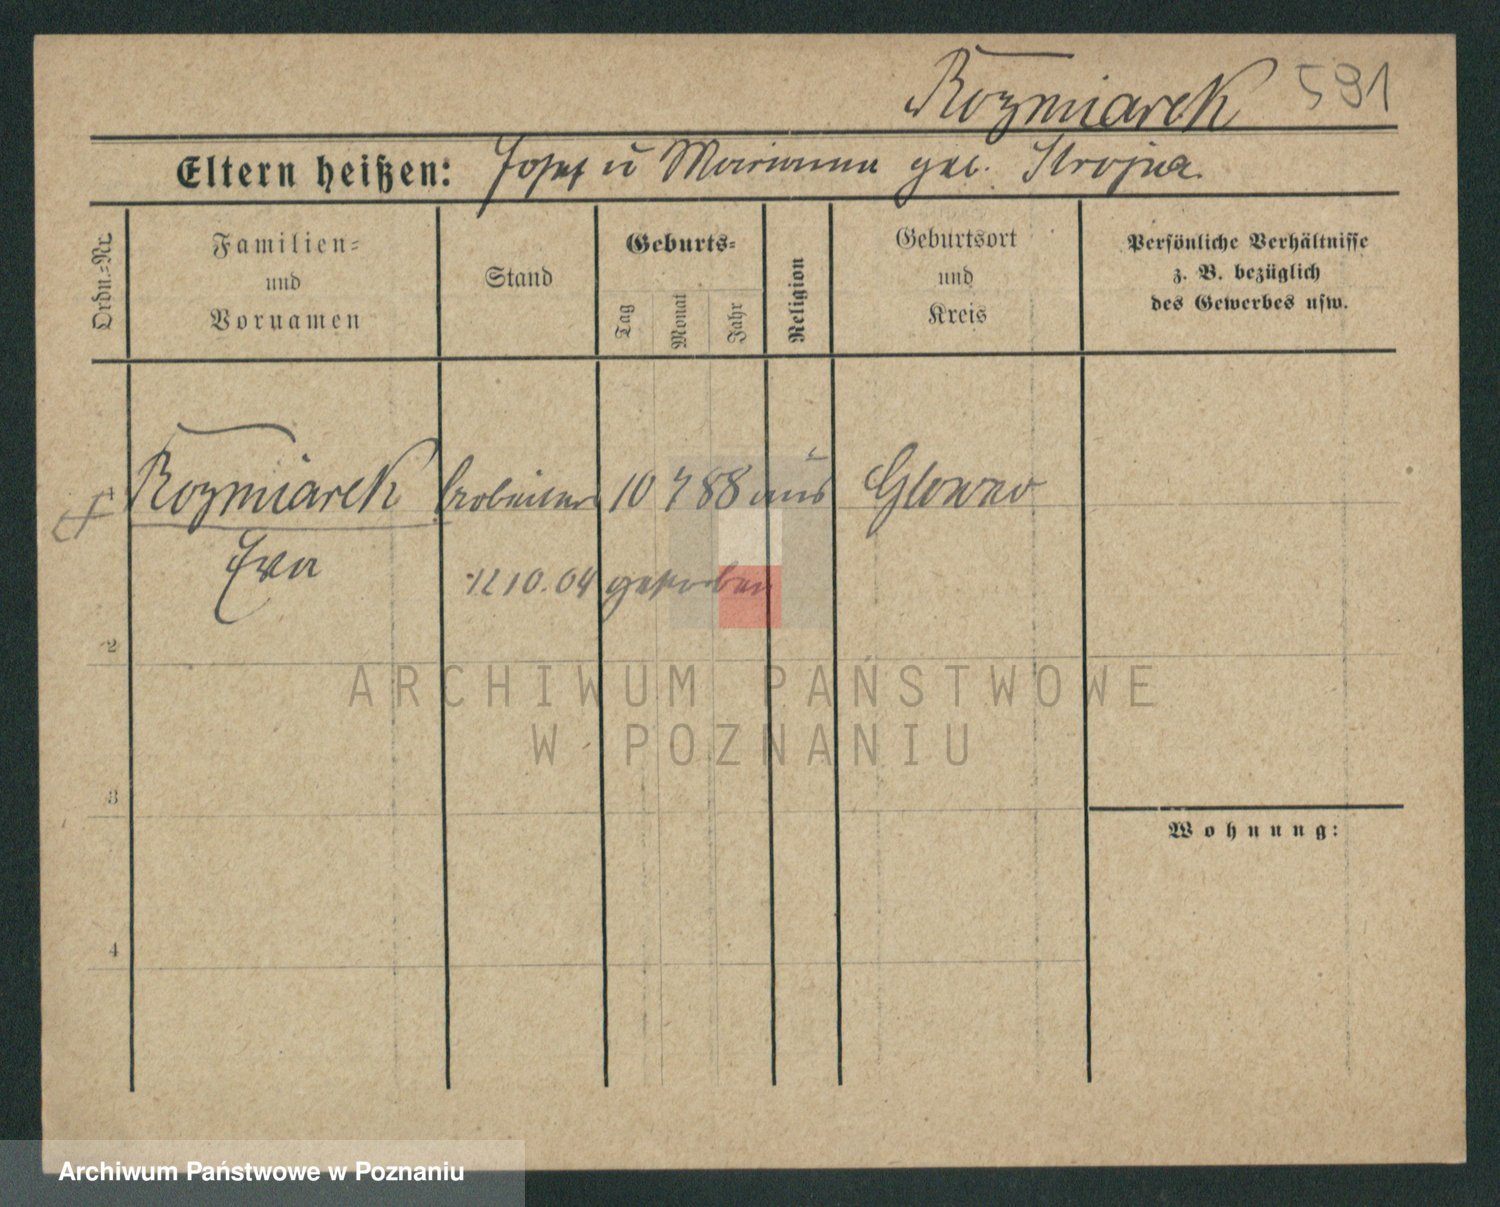 Rozmiarek 591
Eltern heißen: Josef u Marianna geb. Strojna.
Ordn.=Nr.
Familien=
und
Vornamen
Stand
Geburts=
Tag
Monat
Jahr
Religion
Geburtsort
und
Kreis
Persönliche Verhältnisse
z. B. bezüglich
des Gewerbes usw.
Rozmiarek 10 7 88 Glowno
Eva
12 10. 04 gestorben
2
3
4
Wohnung:
ARCHIWUM PAŃSTWOWE
W POZNANIU
Archiwum Państwowe w Poznaniu